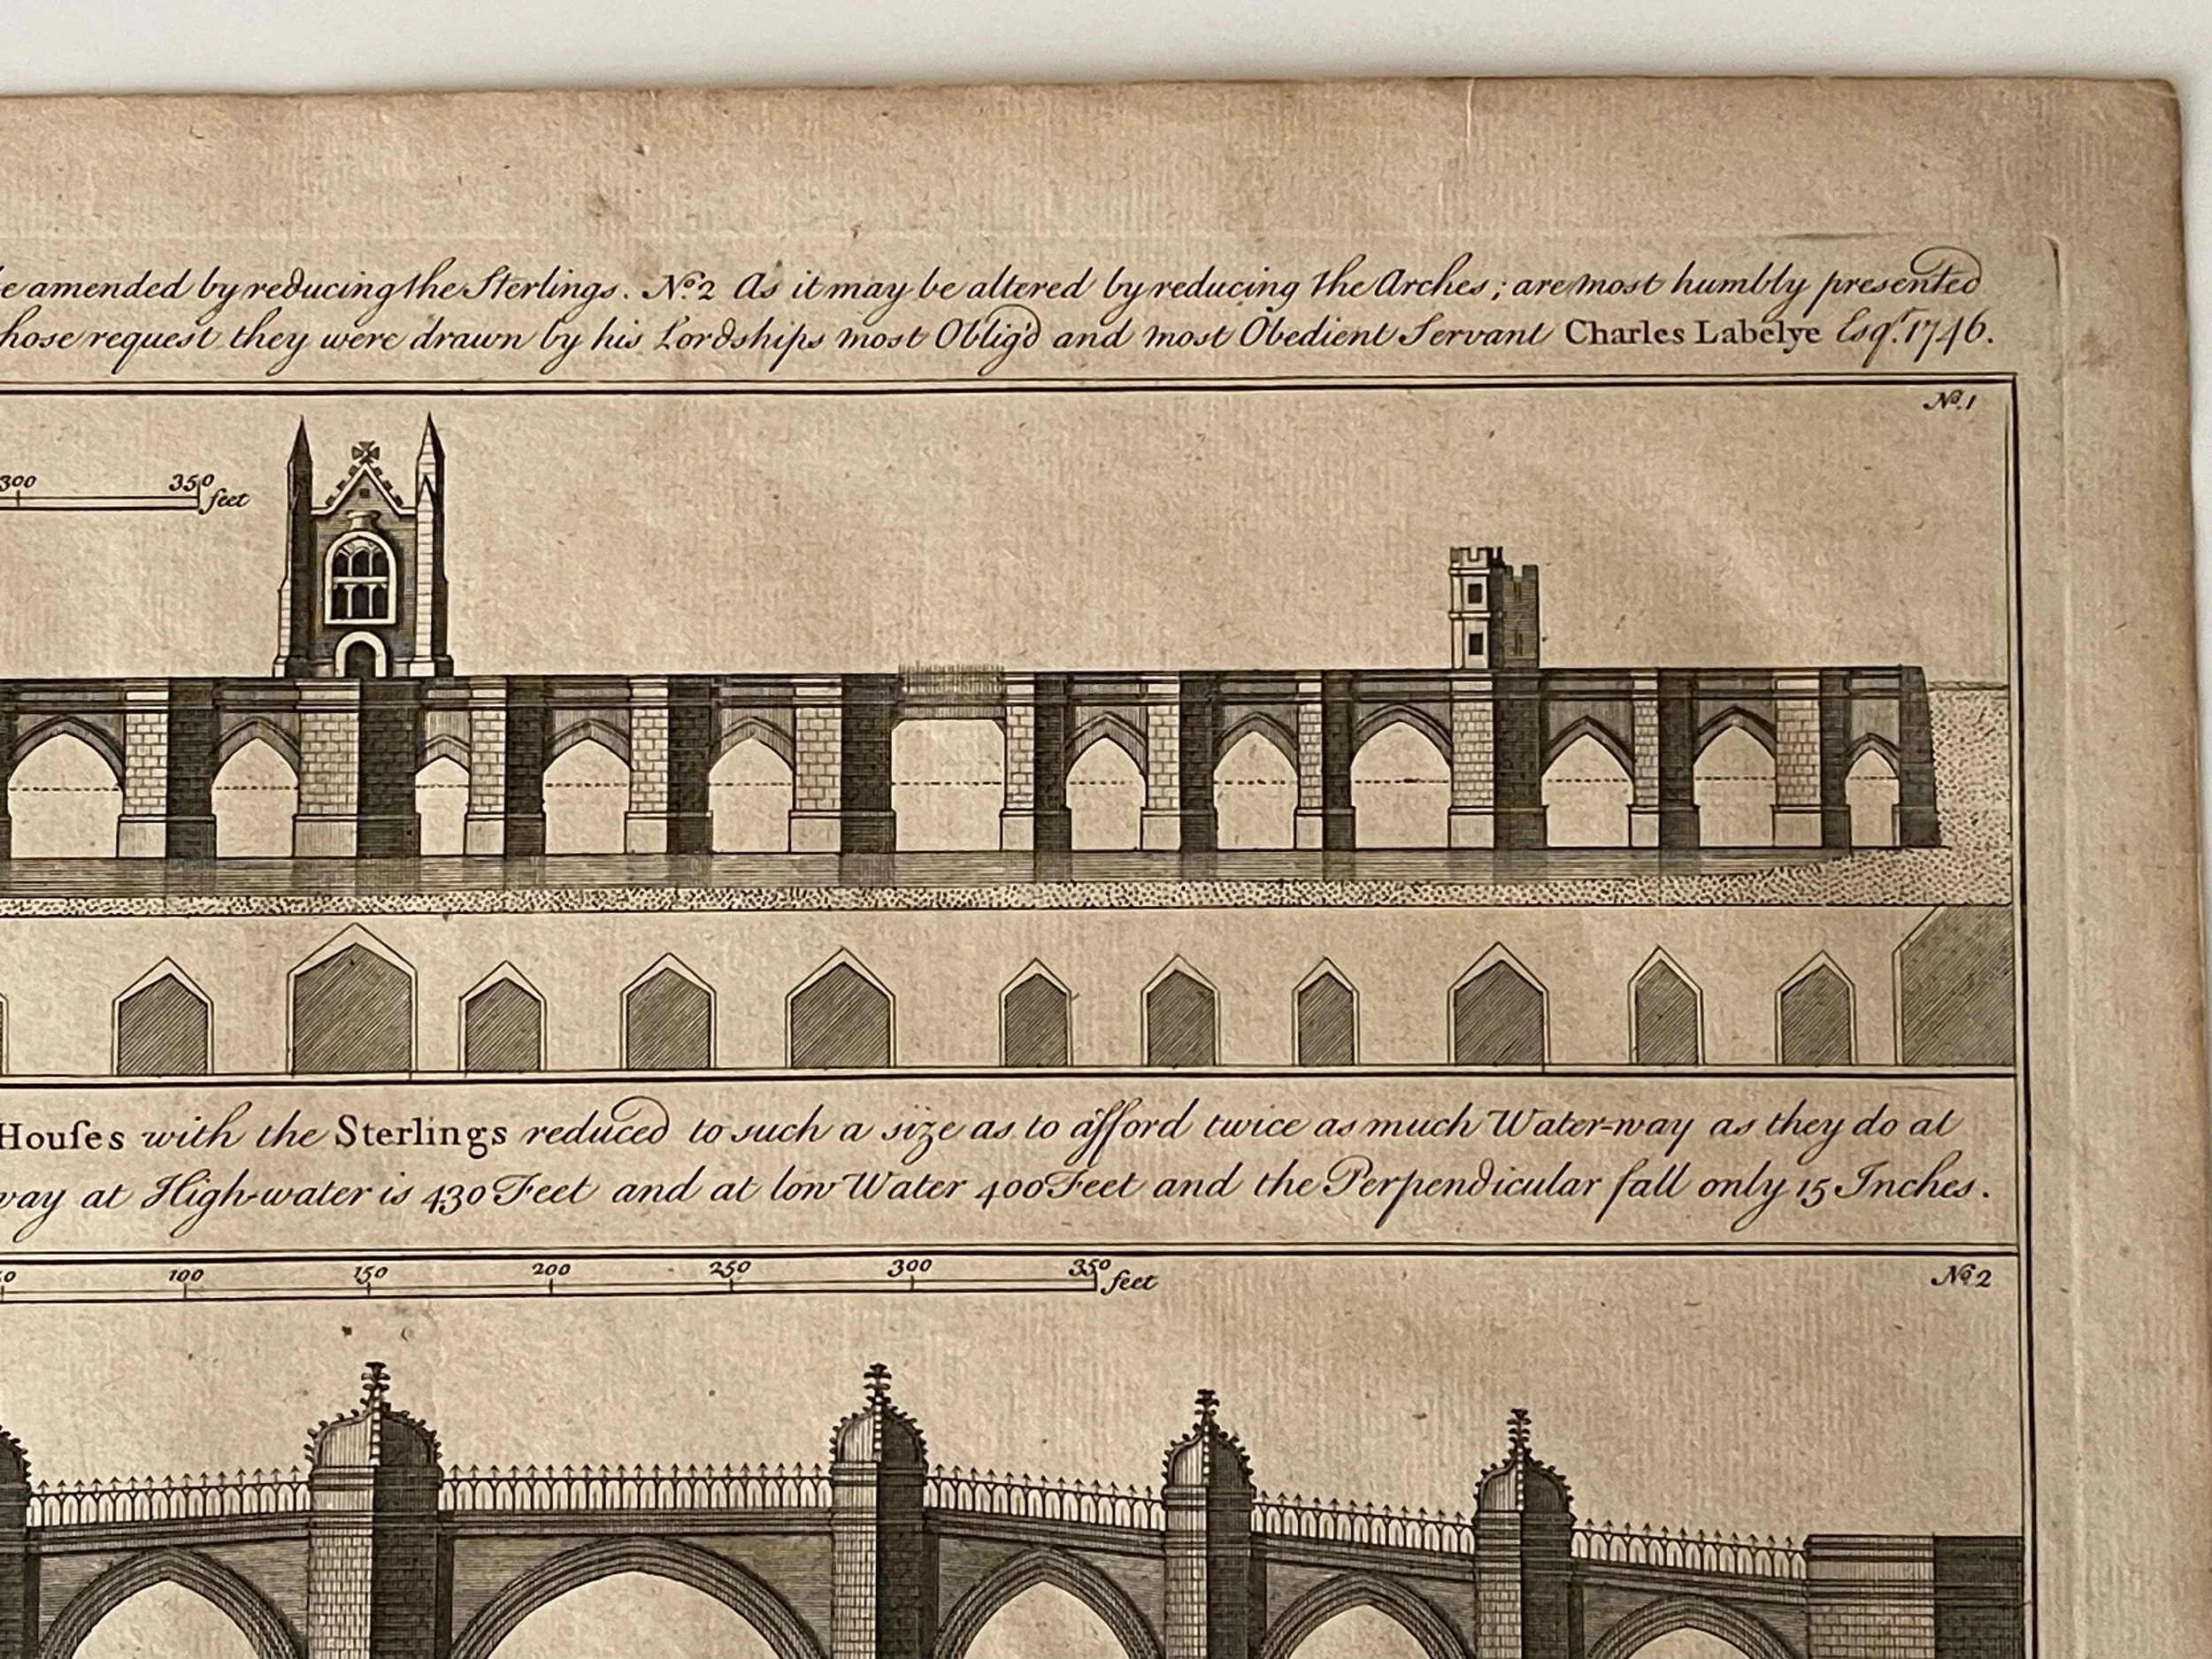 be amended by reducing the Sterlings. No. 2 As it may be altered by reducing the Arches; are most humbly presented
whose request they were drawn by his Lordships most Oblig'd and most Obedient Servant Charles Labelye Esqr. 1746.
No. 1
300 350 feet
Houſes with the Sterlings reduced to such a size as to afford twice as much Water-way as they do at
way at High-water is 430 Feet and at low Water 400 Feet and the Perpendicular fall only 15 Inches.
100 150 200 250 300 350 feet
No. 2